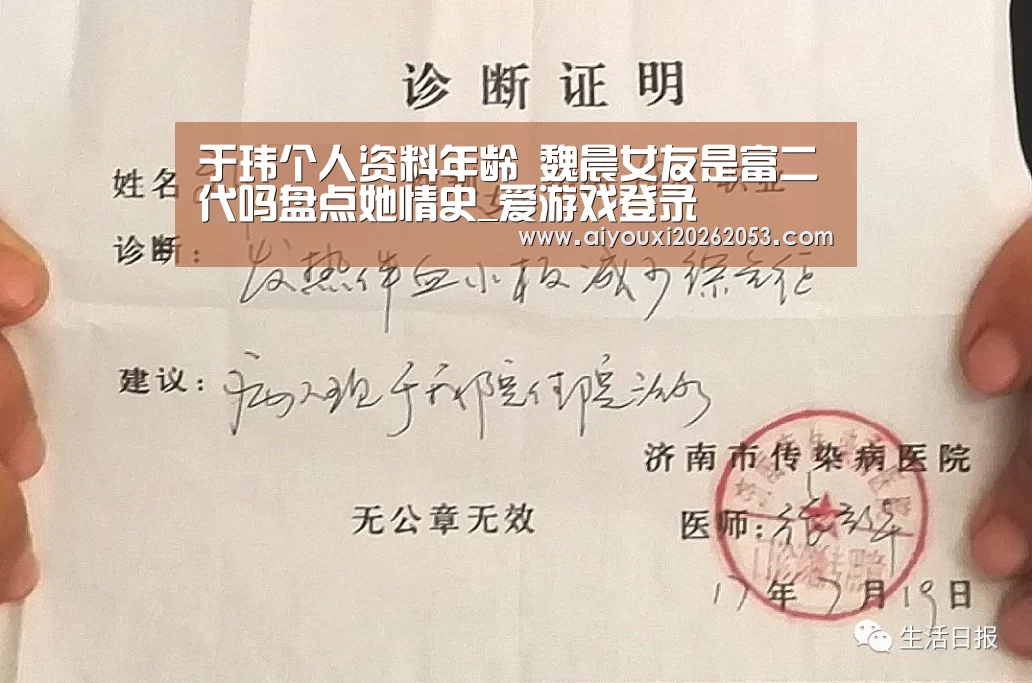 诊断证明
于玮个人资料年龄 魏晨女友是富二
代吗盘点她情史_爱游戏登录
www.aiyouxi20262053.com
姓名
诊断：
发热伴血小板减少综合征
建议：病人现于我院住院治疗
济南市传染病医院
无公章无效
医师：张
17年7月19日
生活日报